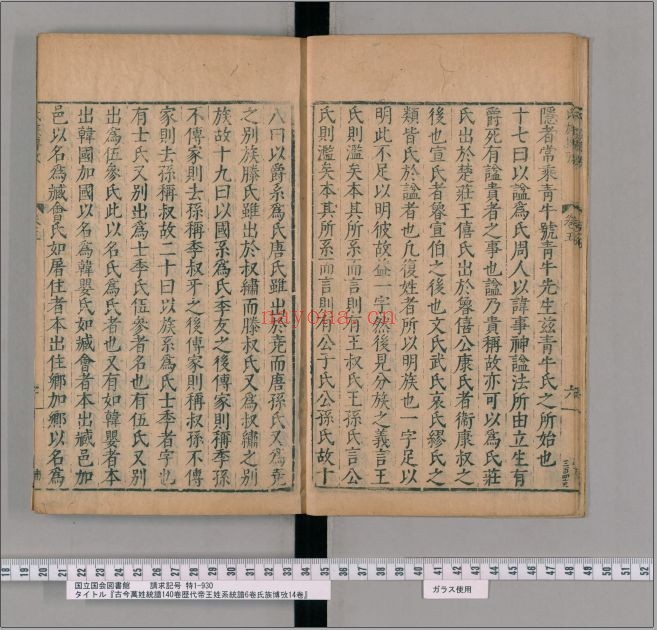 隱者常乘青牛號青牛先生玆青牛氏之所始也
十七曰以諡爲氏周人以諱事神諡法所由立生有
爵死有諡貴者之事也諡乃貴稱故亦可以爲氏莊
氏出於楚莊王僖氏出於魯僖公康氏者衛康叔之
後也宣氏者魯宣伯之後也文氏武氏哀氏繆氏之
類皆氏於諡者也凡復姓者所以明族也一字足以
明此不足以明彼故益一字然後見分族之義言王
氏則濫矣本其所系而言則有王叔氏王孫氏言公
氏則濫矣本其所系而言則有公子氏公孫氏故十
八曰以爵系爲氏唐氏雖出於堯而唐孫氏又爲堯
之別族滕氏雖出於叔繡而滕叔氏又爲叔繡之別
族故十九曰以國系爲氏季友之後傳家則稱季孫
不傳家則去孫稱季叔牙之後傳家則稱叔孫不傳
家則去孫稱叔故二十曰以族系爲氏士季者字也
有士氏又別出爲士季氏伍參者名也有伍氏又別
出爲伍參氏此以名氏爲氏者也又有如韓嬰者本
出韓國加國以名爲韓嬰氏如臧會者本出臧邑加
邑以名爲臧會氏如屠住者本出住鄉加鄉以名爲
卷五
六
nayona.cn
18 19 20 21 22 23 24 25 26 27 28 29 30 31 32 33 34 35 36 37 38 39 40 41 42 43 44 45 46 47 48 49 50 51 52
国立国会図書館 請求記号 特1-930
タイトル『古今萬姓統譜140卷歴代帝王姓系統譜6卷氏族博攷14卷』
ガラス使用